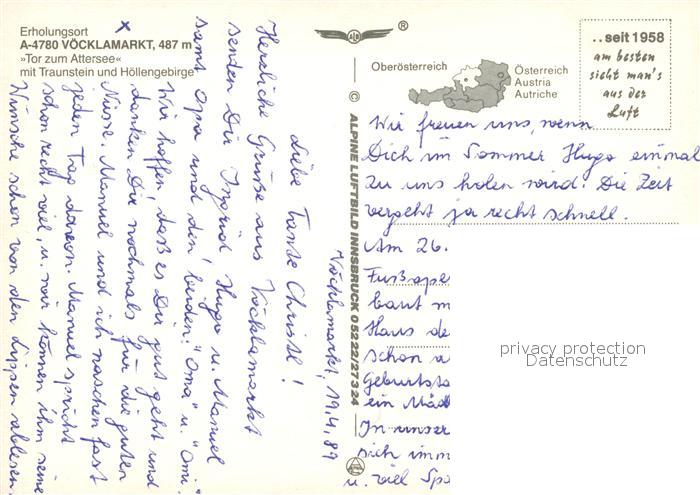 Erholungsort
A-4780 VÖCKLAMARKT, 487 m
»Tor zum Attersee«
mit Traunstein und Höllengebirge
x
®
Oberösterreich
Österreich
Austria
Autriche
..seit 1958
am besten
sieht man's
aus der
Luft
© ALPINE LUFTBILD INNSBRUCK 05222/27324
Vöcklamarkt, 19.4.89
Liebe Tante Christl!
Herzliche Grüße aus Vöcklamarkt
senden Dir Ingrid, Hugo u. Manuel
samt Opa und den beiden "Oma" u. "Omi".
Wir hoffen, daß es Dir gut geht und
danken Dir nochmals für die guten
Nüsse. Manuel und ich naschen fast
jeden Tag davon. Manuel spricht
schon recht viel, u. wir können ihm seine
Wünsche schon von den Lippen ablesen.
Wir freuen uns, wenn
Dich im Sommer Hugo einmal
zu uns holen wird! Die Zeit
vergeht ja recht schnell.
Am 26.
Fußope
baut m
Haus de
schon a
Geburtsta
ein Mäd
In unser
sich imm
u. viel Spa
privacy protection
Datenschutz